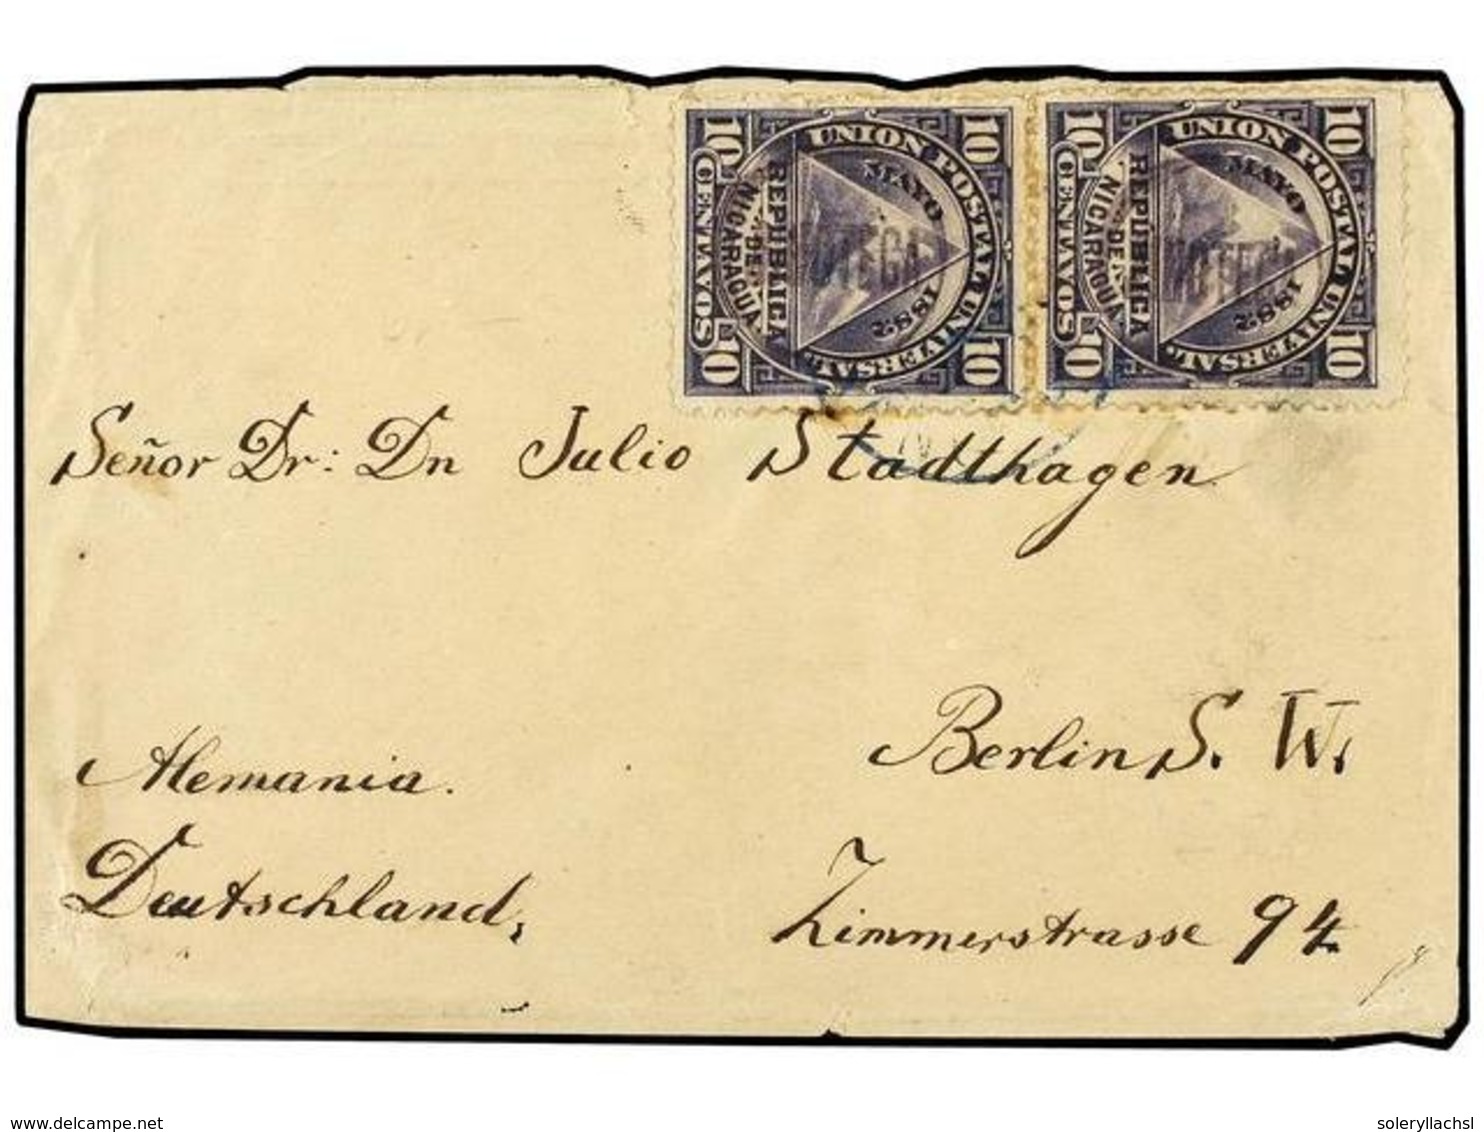 10 10
UNION POSTAL UNIVERSAL
MAYO
1882
REPUBLICA
DE
NICARAGUA
CENTAVOS
10 10
10 10
UNION POSTAL UNIVERSAL
MAYO
1882
REPUBLICA
DE
NICARAGUA
CENTAVOS
10 10
Señor Dr: Dn Julio Stadthagen
Berlin S. W.
Alemania.
Deutschland,
Zimmerstrasse 94
www.delcampe.net
soleryllachsl